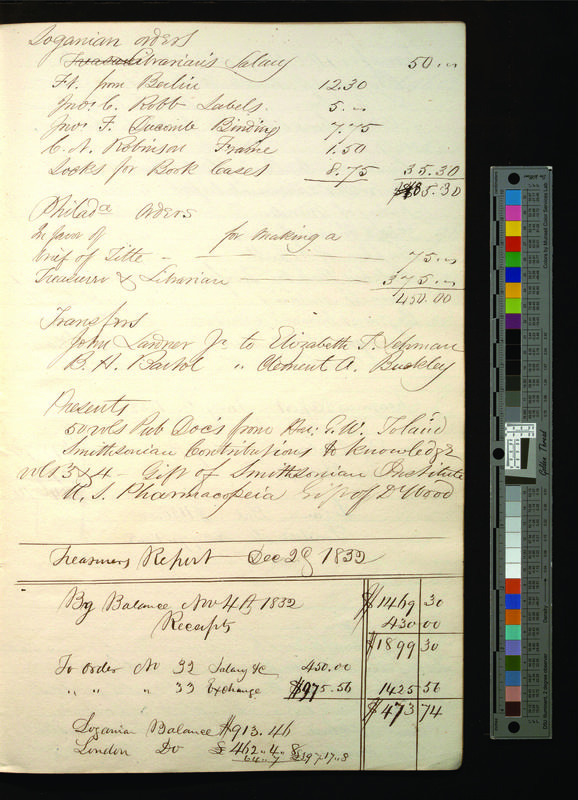 Loganian orders
Librarian's Salary 50.00
Ft. from Berlin 12.30
Jnos C. Robb Labels. 5.00
Jnos F. Ducomb Binding 7.75
C. N. Robinson Frame 1.50
Locks for Book Cases 8.75 35.30
85.30
Philada orders
In favor of for making a
brief of Title 75.00
Treasurer & Librarian 375.00
450.00
Transfers
John Lardner Jr to Elizabeth F. Lehman
B. H. Bartol " Clement A. Buckley
Presents
50 vols Pub Docs from Hon: G. W. Toland
Smithsonian Contributions to Knowledge
vols 3 & 4 - Gift of Smithsonian Institute
U. S. Pharmacopeia Gift of Dr Wood
Treasurers Report - Dec 29 1832
By Balance Nov 4th 1832 $1469 30
Receipts 430 00
$1899 30
To order No 32 Salary &c 450.00
" " " 33 Exchange $975.56 1425 56
$473 74
Logania Balance $913.46
London Do £ 462 " 4 " 8
64 " 7 £397.17.8
Golden Thread